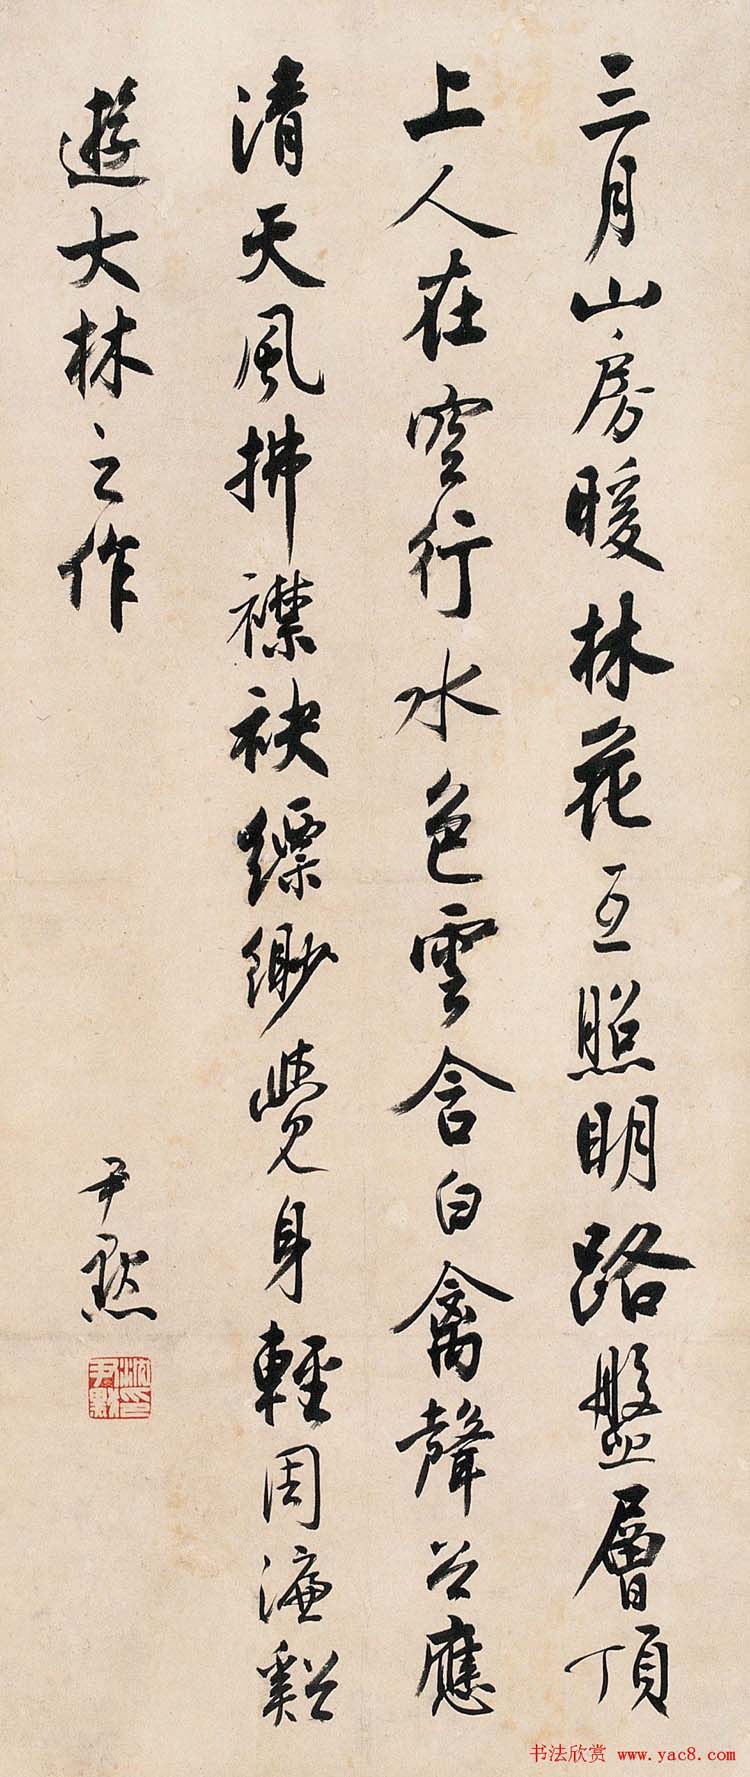 三月山房暖林花互照明路盤層頂
上人在空行水色雲含白禽聲谷應
清天風拂襟袂縹緲覺身輕周濂谿
遊大林之作
尹默
沈印
尹默
书法欣赏 www.yac8.com